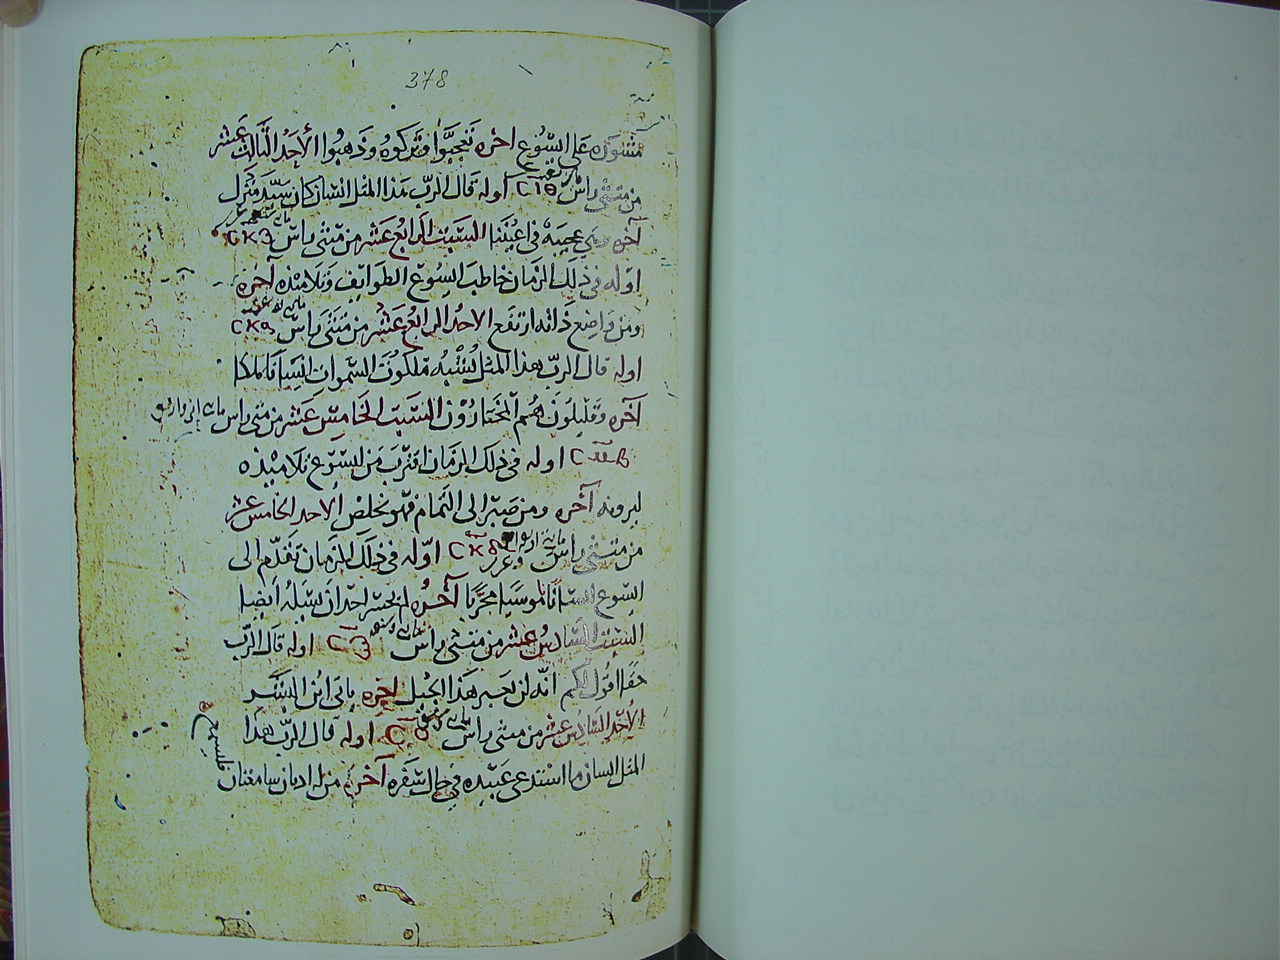 378
مشورة على ايسوع اخره تعجبوا وتركوه وذهبوا الأحد الثالث عشر
من متى راس CΙΘ اوله قال الرب هذا المثل انسان كان سيد منزل
آخره وهي عجيبة في اعيننا السبت الرابع عشر من متى راس CΚ
اوله في ذلك الزمان خاطب ايسوع الطوايف وتلاميذه آخره
ومن واضع ذاته ارتفع الاحد الرابع عشر من متى راس CΚ
اوله قال الرب هذا المثل تشبه ملكوت السموات انسانا ملكا
آخره وقليلون هم المختارون السبت الخامس عشر من متى راس
اوله في ذلك الزمان اقترب من ايسوع تلاميذه
ليرونه آخره ومن صبر الى التمام فهو يخلص الاحد الخامس عشر
من متى راس CΚ اوله في ذلك الزمان تقدم الى
ايسوع انسانا موسيا مجربا آخره احد ان يسيله أيضا
السبت السادس عشر من متى راس اوله قال الرب
حقا اقول لكم انه لن يعبر هذا الجيل اخره ياتي ابن البشر
الأحد السادس عشر من متى راس اوله قال الرب هذا
المثل انسان ما استدعى عبيده في حال سفره آخره من له اذنان سامعتان
فليسمع